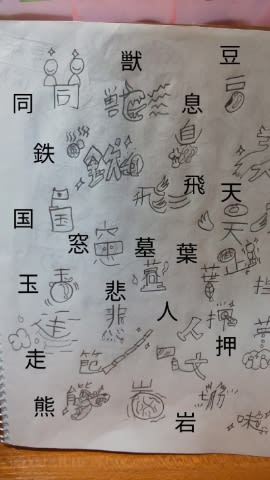 獣
豆
同
息
鉄
飛
天
国
窓
墓
葉
玉
悲
人
押
走
熊
岩
味